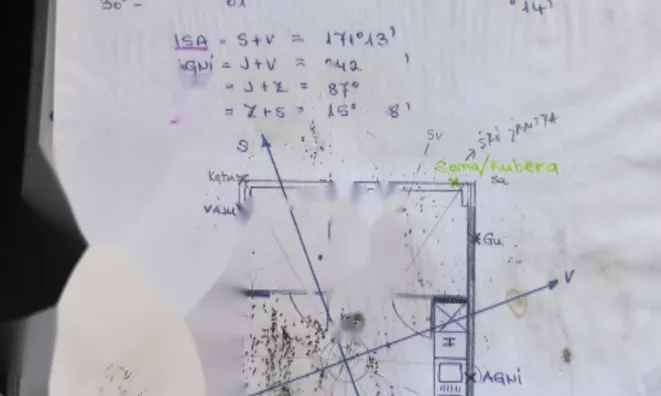 30° - 01 °14'
ISA = S+V = 171°13'
AGNI = J+V = 42 '
= J+Z = 87°
= Z+S = 15° 8'
S Sv SRI JANTRA
Ketu Soma/Kubera
Sa
VAJU
Gu
V
AGNI